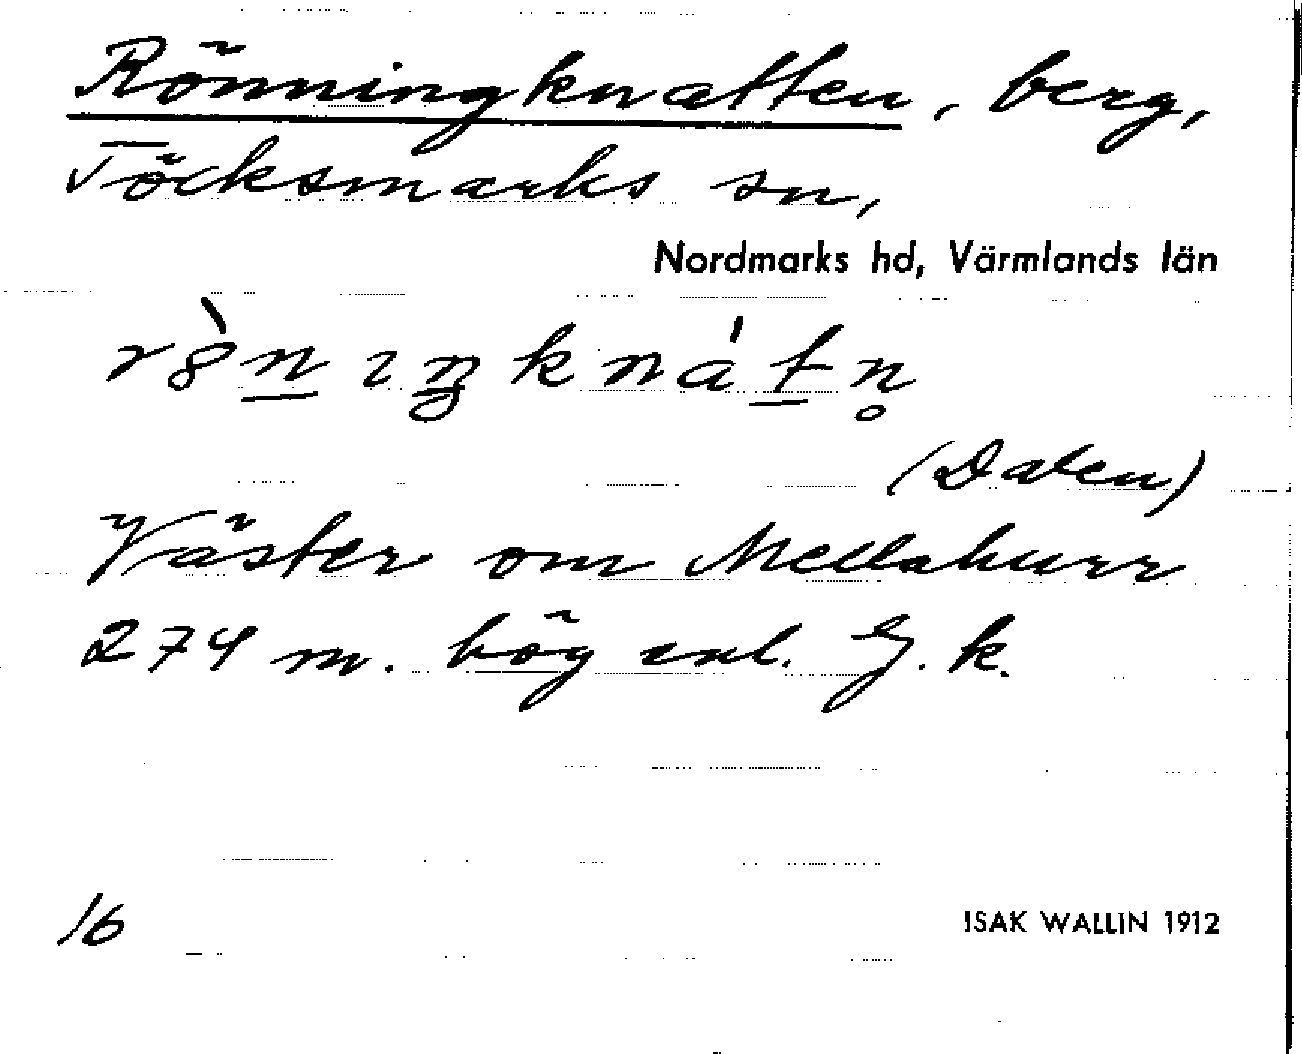 Rönningknatten, berg,
Töcksmarks sn,
Nordmarks hd, Värmlands län
(Dalen)
Väster om Mellahurr
274 m. hög enl. G. k.
16
ISAK WALLIN 1912